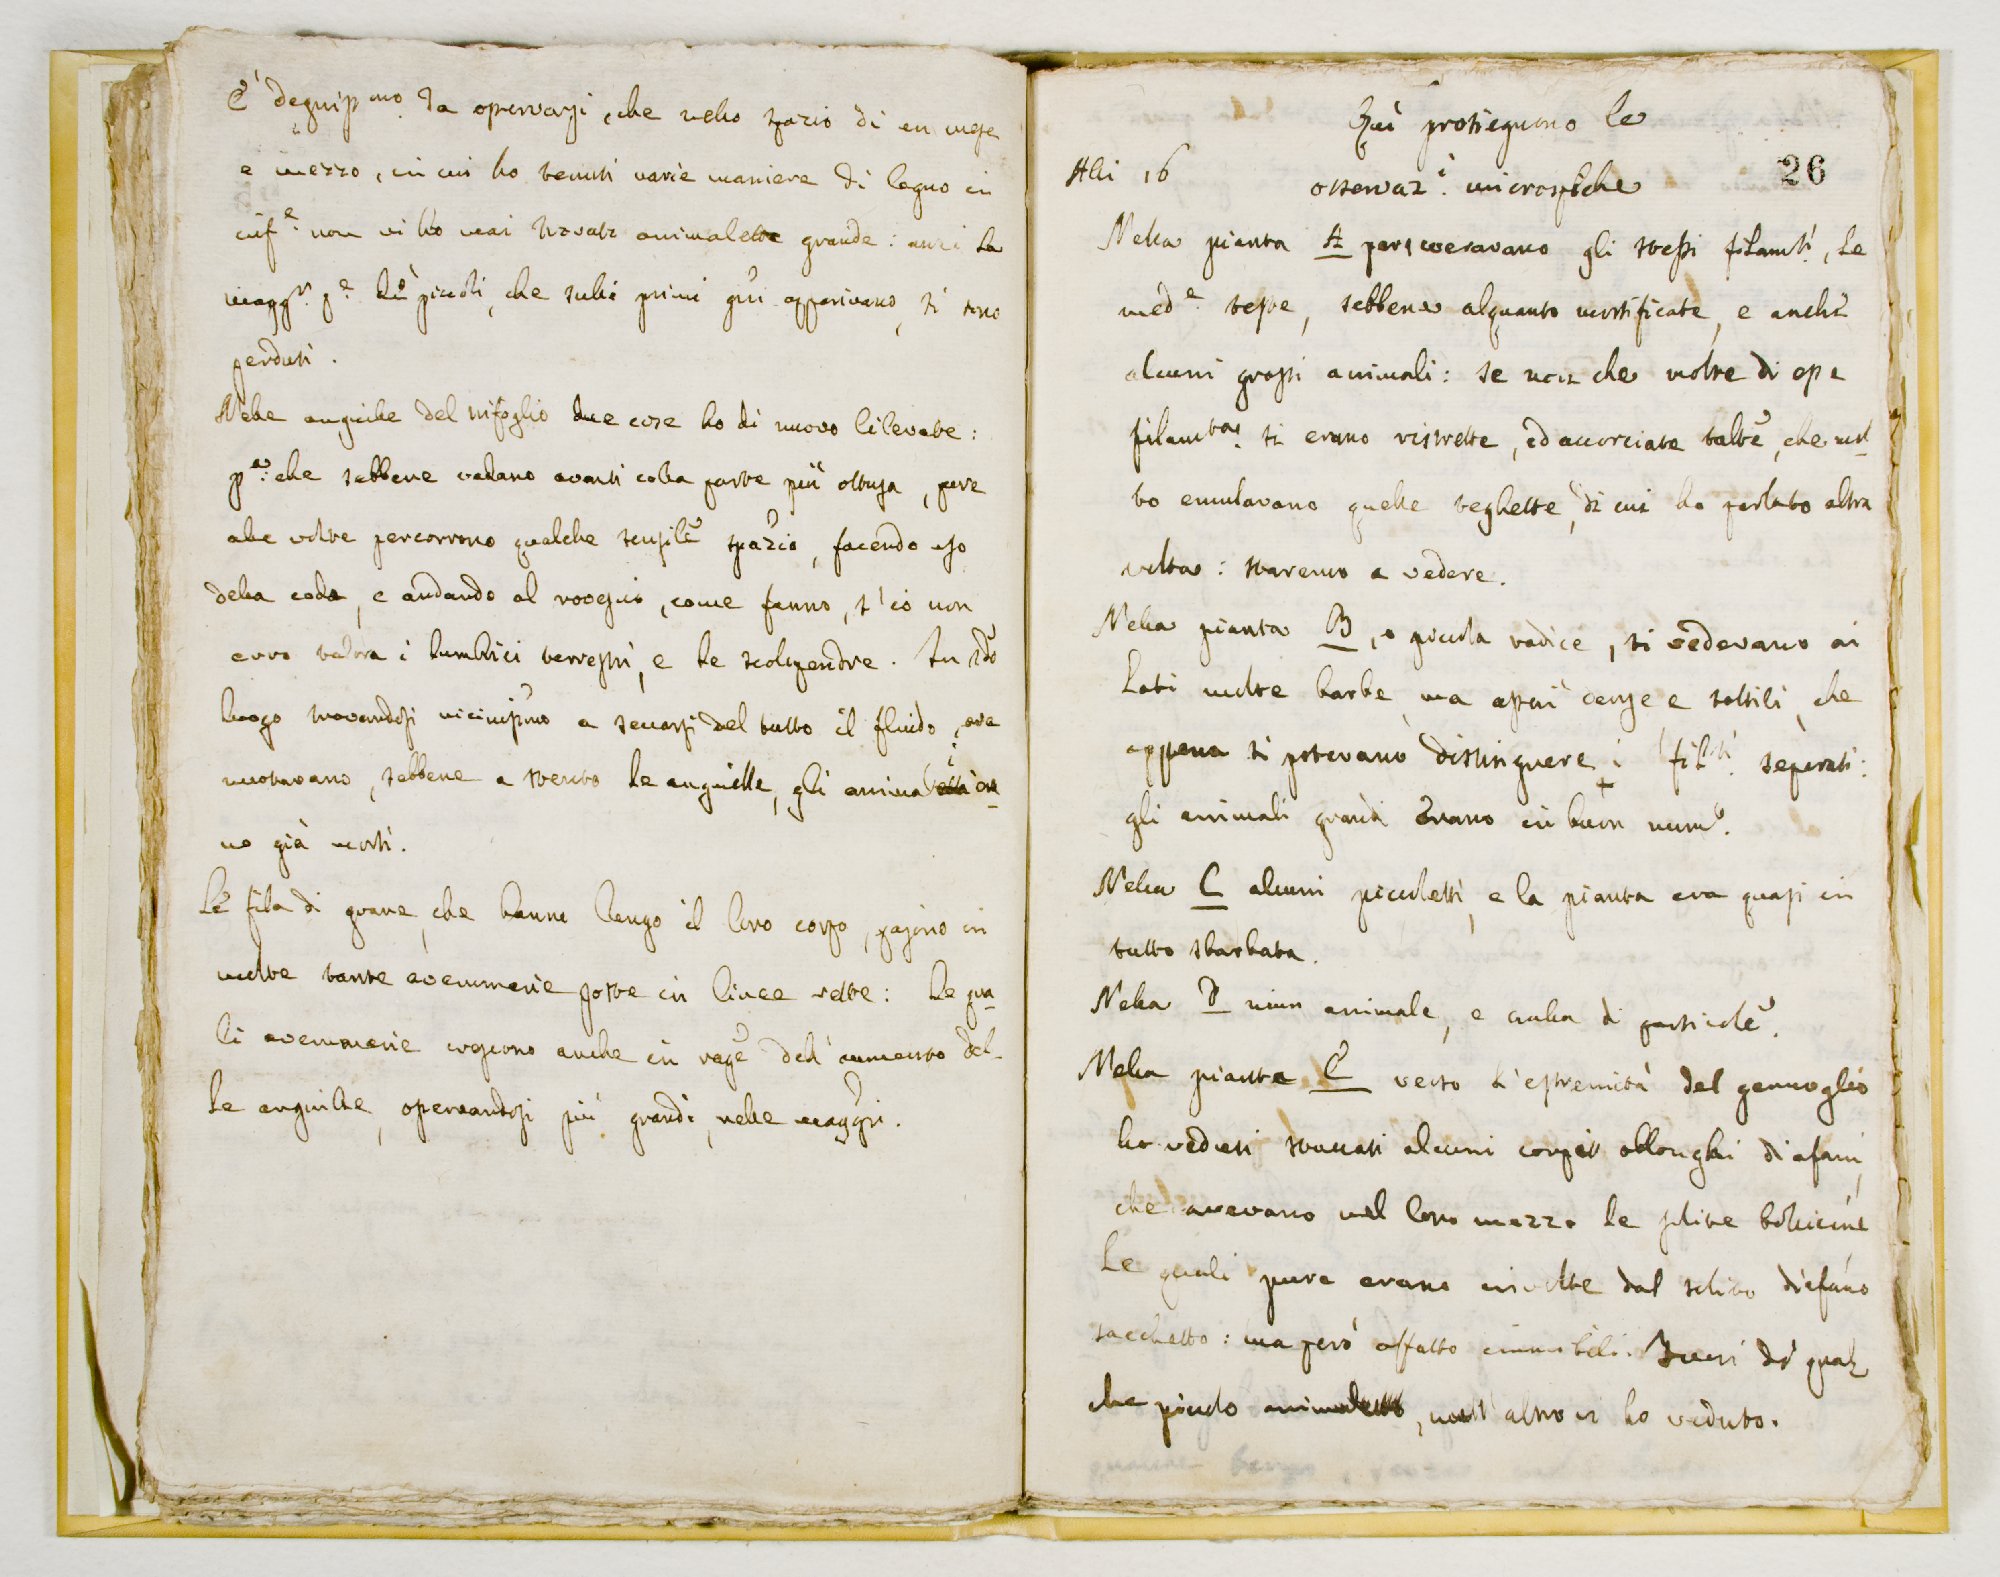 È degniss.mo da osservarsi, che nello spazio di un mese
e mezzo, in cui ho tenuti varie maniere di legno in
inf.e non vi ho mai trovato animaletto grande: anzi la
magg.r p.e de' piccoli, che sulli primi gni apparivano, si sono
perduti.
Nelle anguille del trifoglio due cose ho di nuovo rilevate:
p.a: che sebbene vadano avanti colla parte più ottusa, pure
alle volte percorrono qualche sensile spazio, facendo uso
della coda, e andando al rovescio, come fanno, s'io non
erro talora i lumbrici terrestri, e le scolopendre. In 2do
luogo trovandosi vicinissimo a seccarsi del tutto il fluido, ove
nuotavano, sebbene a stento le anguille, gli animali era
no già morti.
Le fila di grane, che hanno lungo il loro corpo, pajono in
molte tante avemmarie poste in linee rette: le qua
li avemmarie crescono anche in rage dell'aumento del-
le anguille, osservandosi più grandi, nelle maggri.
Qui prosieguono le
Alli 16
osservaz.i microspiche
26
Nella pianta A perseveravano gli stessi filamti, le
med.e teste, sebbene alquanto mortificate, e anche
alcuni grossi animali: se non che molte di esse
filamta si erano ristrette, ed accorciate talte, che mol
to emulavano quelle teghette, di cui ho parlato altra
volta: staremo a vedere.
Nella pianta B, o piccola radice, si vedevano ai
lati molte barbe, ma assai dense e sottili, che
appena si potevano distinguere i fil.ti separati:
gli animali grandi erano in buon num.o
Nella C alcuni piccoletti, e la pianta era quasi in
tutto sbarbata.
Nella D niun animale, e nulla di particole.
Nella pianta E verso l'estremità del germoglio
ho veduti staccati alcuni corpi oblonghi diafani,
che avevano nel loro mezzo le solite bollicine
le quali pure erano involte dal solito diafano
sacchetto: ma però affatto immobili. Fuori di qual
che piccolo animaletto, nient'altro vi ho veduto.